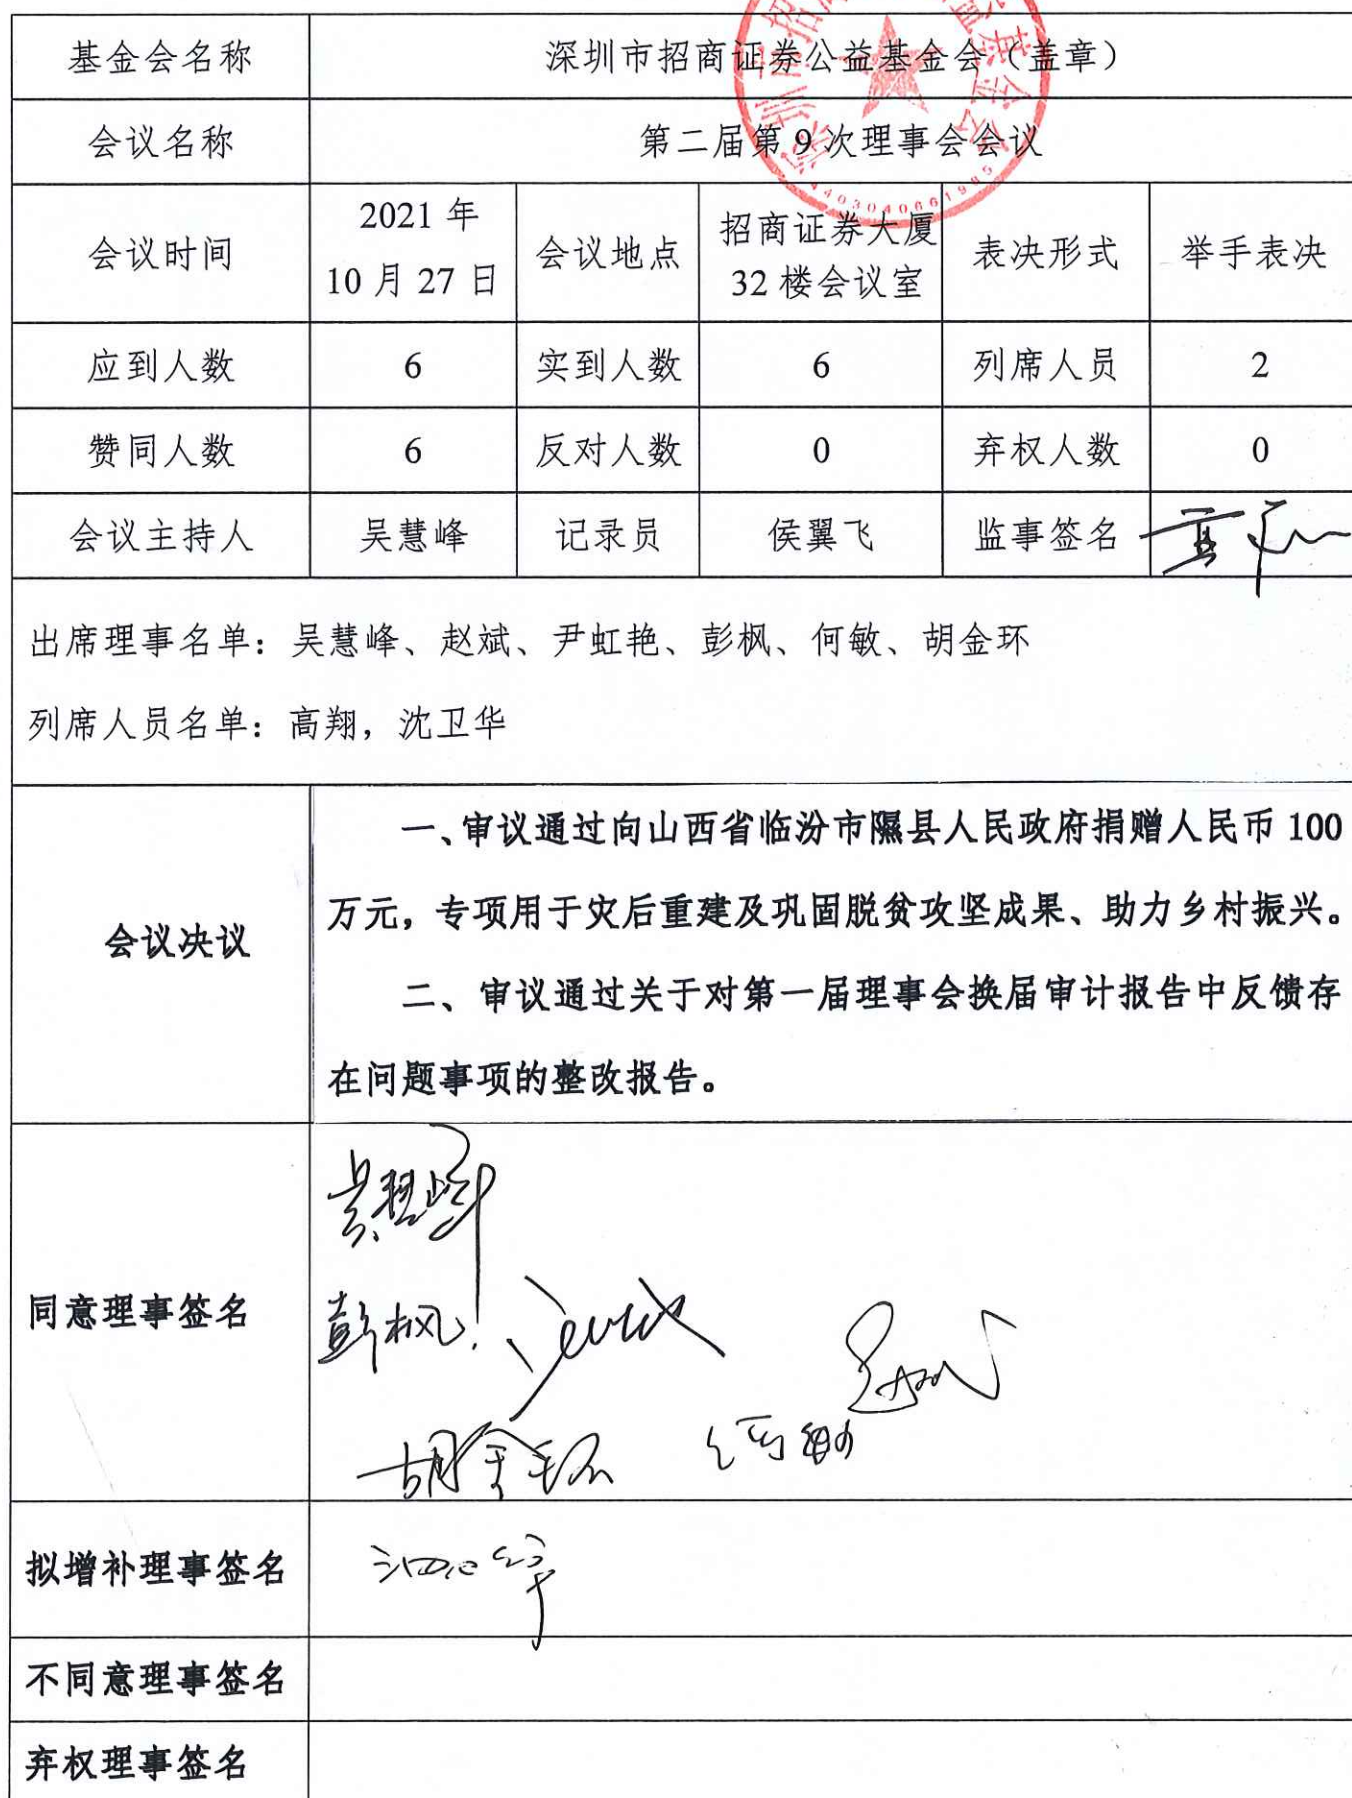 基金会名称 深圳市招商证券公益基金会（盖章）
会议名称 第二届第9次理事会会议
会议时间 2021年10月27日 会议地点 招商证券大厦32楼会议室 表决形式 举手表决
应到人数 6 实到人数 6 列席人员 2
赞同人数 6 反对人数 0 弃权人数 0
会议主持人 吴慧峰 记录员 侯翼飞 监事签名
出席理事名单：吴慧峰、赵斌、尹虹艳、彭枫、何敏、胡金环
列席人员名单：高翔，沈卫华
会议决议
一、审议通过向山西省临汾市隰县人民政府捐赠人民币100
万元，专项用于灾后重建及巩固脱贫攻坚成果、助力乡村振兴。
二、审议通过关于对第一届理事会换届审计报告中反馈存
在问题事项的整改报告。
同意理事签名
吴慧峰
彭枫
胡金环 何敏
拟增补理事签名
不同意理事签名
弃权理事签名